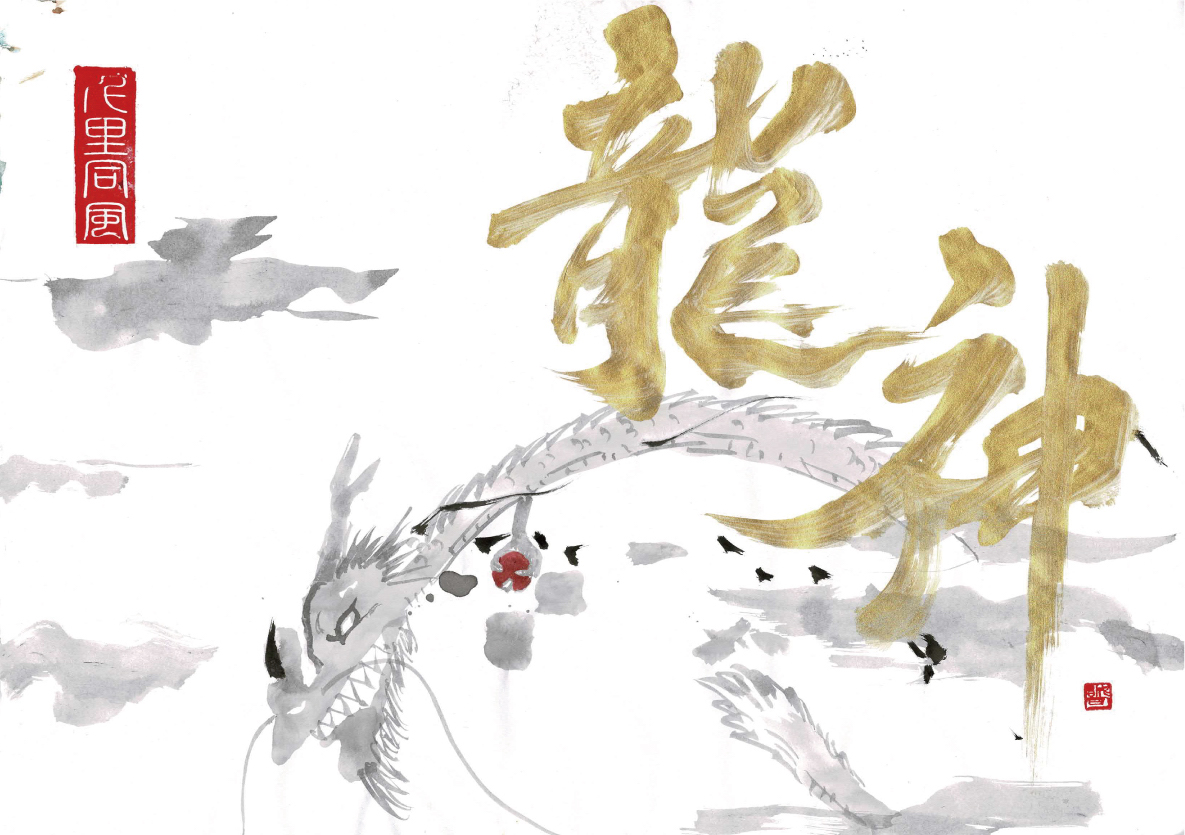 龍神
里同風